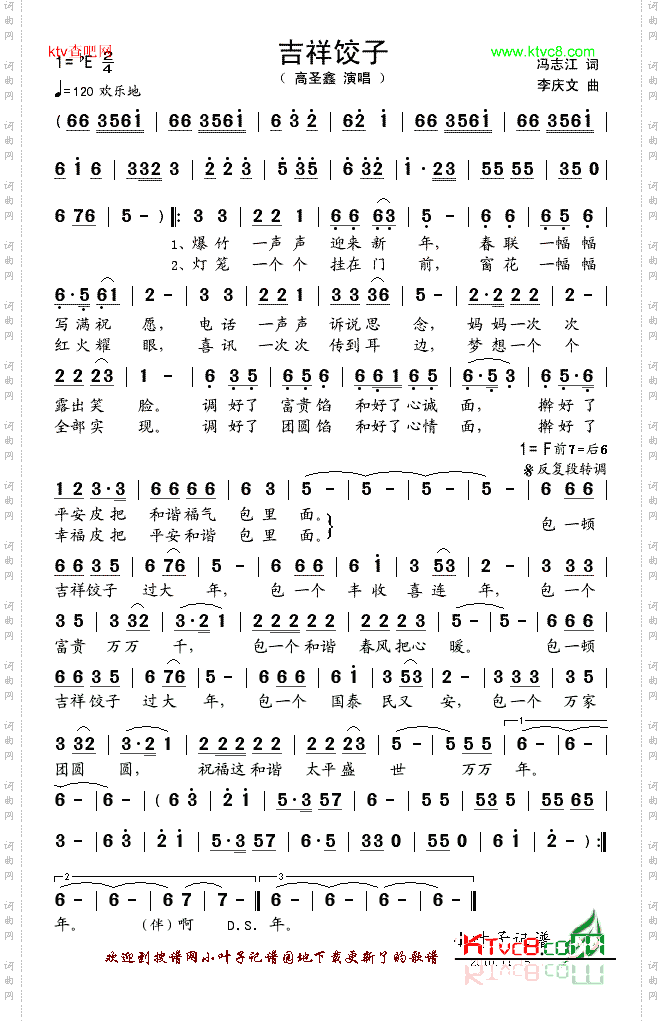 ktv查吧网
吉祥饺子
www.ktvc8.com
1=ᵇE 2/4
（ 高圣鑫 演唱 ）
冯志江 词
♩=120 欢乐地
李庆文 曲
( 66 3561 | 66 3561 | 6 3 2 | 62 1 | 66 3561 | 66 3561 |
6 1 6 | 332 3 | 2 2 3 | 5 35 | 6 32 | 1· 23 | 55 55 | 35 0 |
6 76 | 5 - ) ‖: 3 3 | 2 2 1 | 6 6 63 | 5 - | 6 6 | 6 5 6 |
1、爆竹 一声声 迎来新 年， 春联 一幅幅
2、灯笼 一个个 挂在门 前， 窗花 一幅幅
6·5 61 | 2 - | 3 3 | 2 2 1 | 3 3 36 | 5 - | 2·2 2 2 | 2 - |
写满祝 愿， 电话 一声声 诉说思 念， 妈妈一次 次
红火耀 眼， 喜讯 一次次 传到耳 边， 梦想一个 个
2 2 23 | 1 - | 6 35 | 6 5 6 | 661 65 | 6·5 3 | 65·6 |
露出笑 脸。 调好了 富贵馅 和好了心诚 面， 擀好了
全部实 现。 调好了 团圆馅 和好了心情 面， 擀好了
1=F前7=后6
𝄋反复段转调
1 2 3·3 | 6 6 6 6 | 6 3 | 5 - | 5 - | 5 - | 5 - | 6 66 |
平安皮把 和谐福气 包里 面。
幸福皮把 平安和谐 包里 面。
包 一顿
6 6 3 5 | 6 76 | 5 - | 6 66 | 6 1 | 3 53 | 2 - | 3 33 |
吉祥饺子 过大 年， 包一个 丰收 喜连 年， 包一个
3 5 | 3 3 | 3·2 1 | 2 2 2 2 2 | 2 2 2 3 | 5 - | 5 - | 6 66 |
富贵 万万 千， 包一个和谐 春风把心 暖。 包一顿
6 6 3 5 | 6 76 | 5 - | 6 66 | 6 1 | 3 53 | 2 - | 3 33 | 3 5 |
吉祥饺子 过大 年， 包一个 国泰 民又 安， 包一个 万家
3 32 | 3·2 1 | 2 2 2 2 2 | 2 2 23 | 5 - | 5 55 | 6 - | 6 - |
团圆 圆， 祝福这和谐 太平盛 世 万万 年。
6 - | 6 - | ( 6 3 | 2 1 | 5·3 57 | 6 - | 5 3 5 | 55 65 |
3 - | 6 2 | 2 1 | 5·3 57 | 6·5 | 33 0 | 55 0 | 6 1 | 2 - ) :‖
6 - | 6 - | 6 7 | 7 - ‖ 6 - | 6 - | 6 - | 6 - ‖
年。 （伴）啊 D.S. 年。
欢迎到搜谱网小叶子记谱园地下载更新了的歌谱
KTvc8.com
词曲网